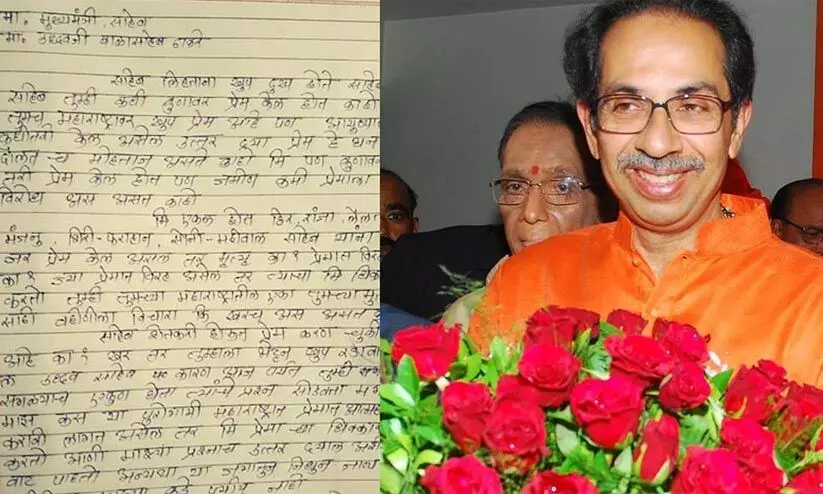 मा. मुख्यमंत्री, साहेब
मा. उद्धवजी बाळासाहेब ठाकरे
साहेब लिहताना खुप दुख होते साहेब
साहेब तुम्ही कधी कुणावर प्रेम केल होत काहो
तुमच महाराष्ट्रावर खुप प्रेम आहे पण आयुष्या
कधीतरी केल असेल उत्तर द्या प्रेम हे धन
दौलत च मोहताज असते काहो मि पण कुणावर
तरी प्रेम केल होत पण जमीण कमी प्रेमाला
विरोध अस असत काहो
मि एकल होत हिर, रांजा, लैला
मंजनु, शिरी-फराहान, सोनी-महीवाल साहेब यांना
जर प्रेम केल असल तर मृत्यु का? प्रेमात विरह
का? ज्या प्रेमान विरह असेल तर त्याचा मि धिक्कार
करतो तुम्ही तुमच्या महाराष्ट्रातील एका तुमच्या मु
साठी वहीणीला विचारा कि खरच अस असत
साहेब शेतकरी होऊन प्रेम करण चुकी
आहे का? खर तर तुम्हाला भेटुन खुप रडाव
ल उद्धव साहेब पण कारण आज पर्यंत तुम्ही
सगळ्याच एकुण होता त्यांचे प्रश्न सोडवता म
माझ कस या पुरोगामी महाराष्ट्रात प्रेमात आस
करावी लागत असेल तर मि प्रेमा चा धिक्कार
करतो आणी माझ्या प्रश्नाच उत्तर द्याल अशी
वाट पाहतो अन्यथा या जगातुन निघुन जाण्या
कडे पर्याय नाही